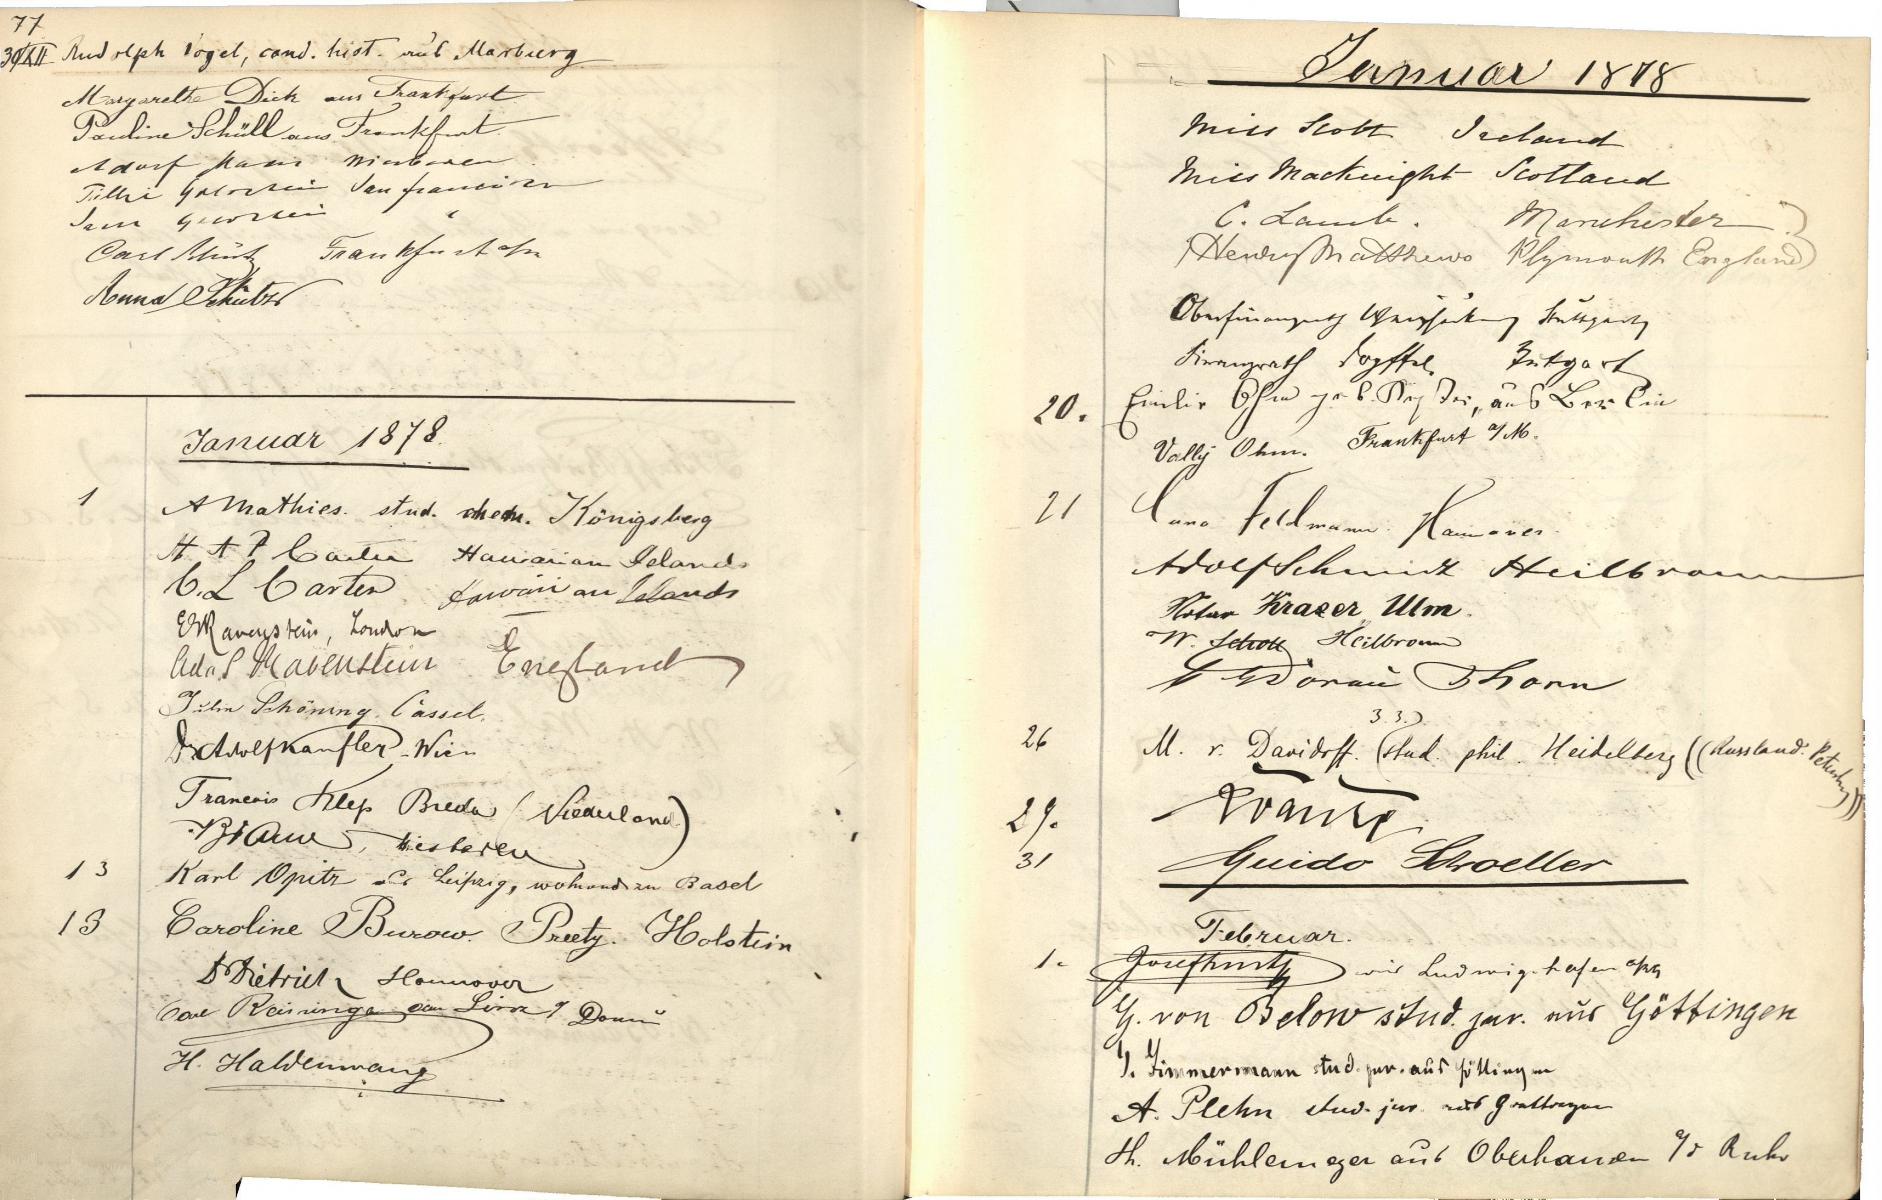 77
30/XII Rudolph Vogel, cand. hist. aus Marburg
Margarethe Dick aus Frankfurt
Pauline Schüll aus Frankfurt
Adolf Wiesbaden
Tilli San Francisco
"
Carl Schütz Frankfurt a/m
Anna Schütz
Januar 1878.
1 A Mathies. stud. chem. Königsberg
H A P Carter Hawaiian Islands
C. L Carter Hawaiian Islands
E G Ravenstein, London
Ada S Ravenstein England
Schöning. Cassel.
Dr Adolf Kaufler - Wien
Francois Klep Breda (Niederland)
Braun, Wiesbaden
13 Karl Opitz aus Leipzig, wohnend zu Basel
13 Caroline Burow. Preetz. Holstein
Dr Dietrich Hannover
Carl Reininger aus Linz a/ Donau
H. Haldenwang
Januar 1878
Miss Scott Ireland
Miss Macknight Scotland
C. Lamb. Manchester
(Henry Matthews Plymouth England)
Oberfinanzrath Stuttgart
Finanzrath Stuttgart
20. Emilie Ohm geb. aus Berlin
Vally Ohm. Frankfurt a/M.
21 Feldmann. Hannover.
Adolf Schmidt Heilbronn
Notar Krazer Ulm.
W. Schott Heilbronn
Thorn
z. Z.
26 M. v. Davidoff. (stud. phil. Heidelberg ((Russland. Petersburg))
29.
31 Guido Schoeller
Februar.
1. aus Ludwigshafen a/Rh
G. von Below stud. jur. aus Göttingen
Zimmermann stud. jur. aus Göttingen
A. Plehn stud. jur. aus Goettingen
Th. Mühlemeyer aus Oberhausen a/d Ruhr